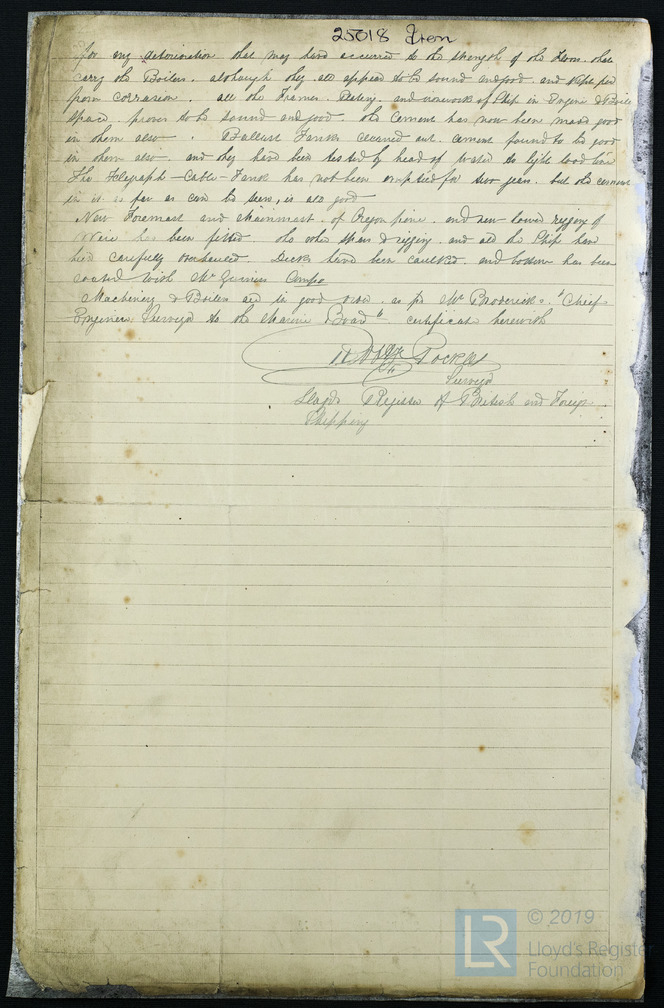 25018 Iron
for any deterioration that may have occurred to the strength of the Floors that
carry the Boilers. although they all appear to be sound and good and free
from corrosion. all the Frames, Plating, and ironwork of Ship in Engine & Boiler
Space proves to be sound and good. the Cement has now been made good
in them also. Ballast Tanks cleaned out. cement found to be good
in them also. and they have been tested by head of water to light load line
The Telegraph-Cable-Tank has not been emptied for two years. but the cement
in it as far as can be seen, is also good
New Foremast and Mainmast of Oregon pine. and new lower rigging of
Wire has been fitted the other Spars & rigging and all the Ship have
been carefully overhauled. Decks have been caulked. and bottom has been
coated with Mc Guiness Compo
Machinery & Boilers are in good order. as pr Mr Broderick's. "Chief
Engineer Surveyor to the Marine Board" certificate herewith
Pockley
Surveyor
Lloyds Register of British and Foreign
Shipping
LR
© 2019
Lloyd's Register
Foundation